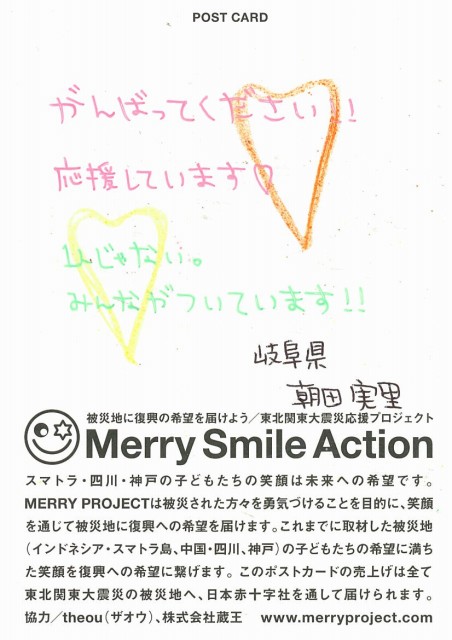 POST CARD
がんばってください!!
応援しています♡
1人じゃない。
みんながついています!!
岐阜県
朝田 実里
被災地に復興の希望を届けよう／東北関東大震災応援プロジェクト
Merry Smile Action
スマトラ・四川・神戸の子どもたちの笑顔は未来への希望です。
MERRY PROJECTは被災された方々を勇気づけることを目的に、笑顔
を通じて被災地に復興への希望を届けます。これまでに取材した被災地
（インドネシア・スマトラ島、中国・四川、神戸）の子どもたちの希望に満ち
た笑顔を復興への希望に繋げます。このポストカードの売上げは全て
東北関東大震災の被災地へ、日本赤十字社を通して届けられます。
協力／theou（ザオウ）、株式会社蔵王 www.merryproject.com